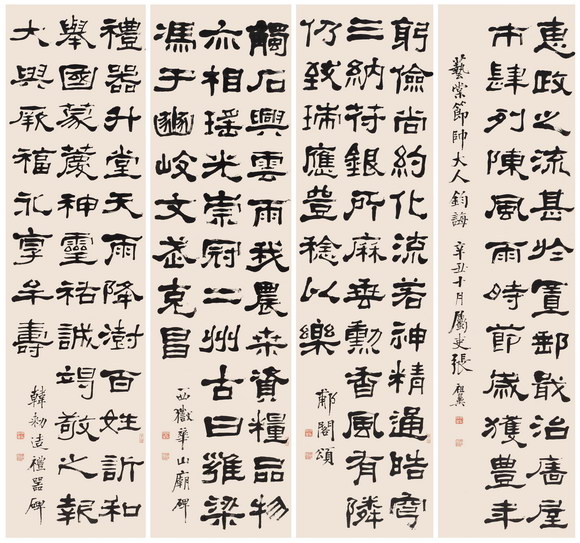 惠政之流甚於置郵戢治廧屋
市肆列陳風雨時節歲獲豐年
藝棠節帥大人鈞誨 辛丑十月屬吏張祖翼
躬儉尚約化流若神精通晧穹
三納苻銀所歷垂勳香風有隣
仍致瑞應豐稔以樂
郙閣頌
觸石興雲雨我農桒資糧品物
亦相瑶光崇冠二州古曰雍梁
馮于豳岐文武克昌
西嶽華山廟碑
禮器升堂天雨降澍百姓訢和
舉國蒙慶神靈祐誠竭敬之報
天與厥福永享牟壽
韓勑造禮器碑